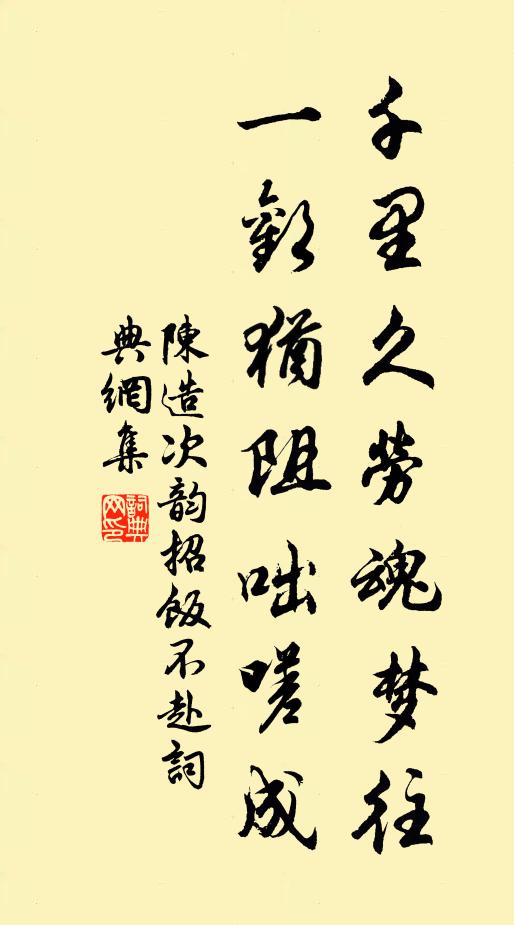 千里久勞魂梦往
一歡猶阻咄嗟成
陳造次韵招飯不赴詞
典網集
詞典
网印